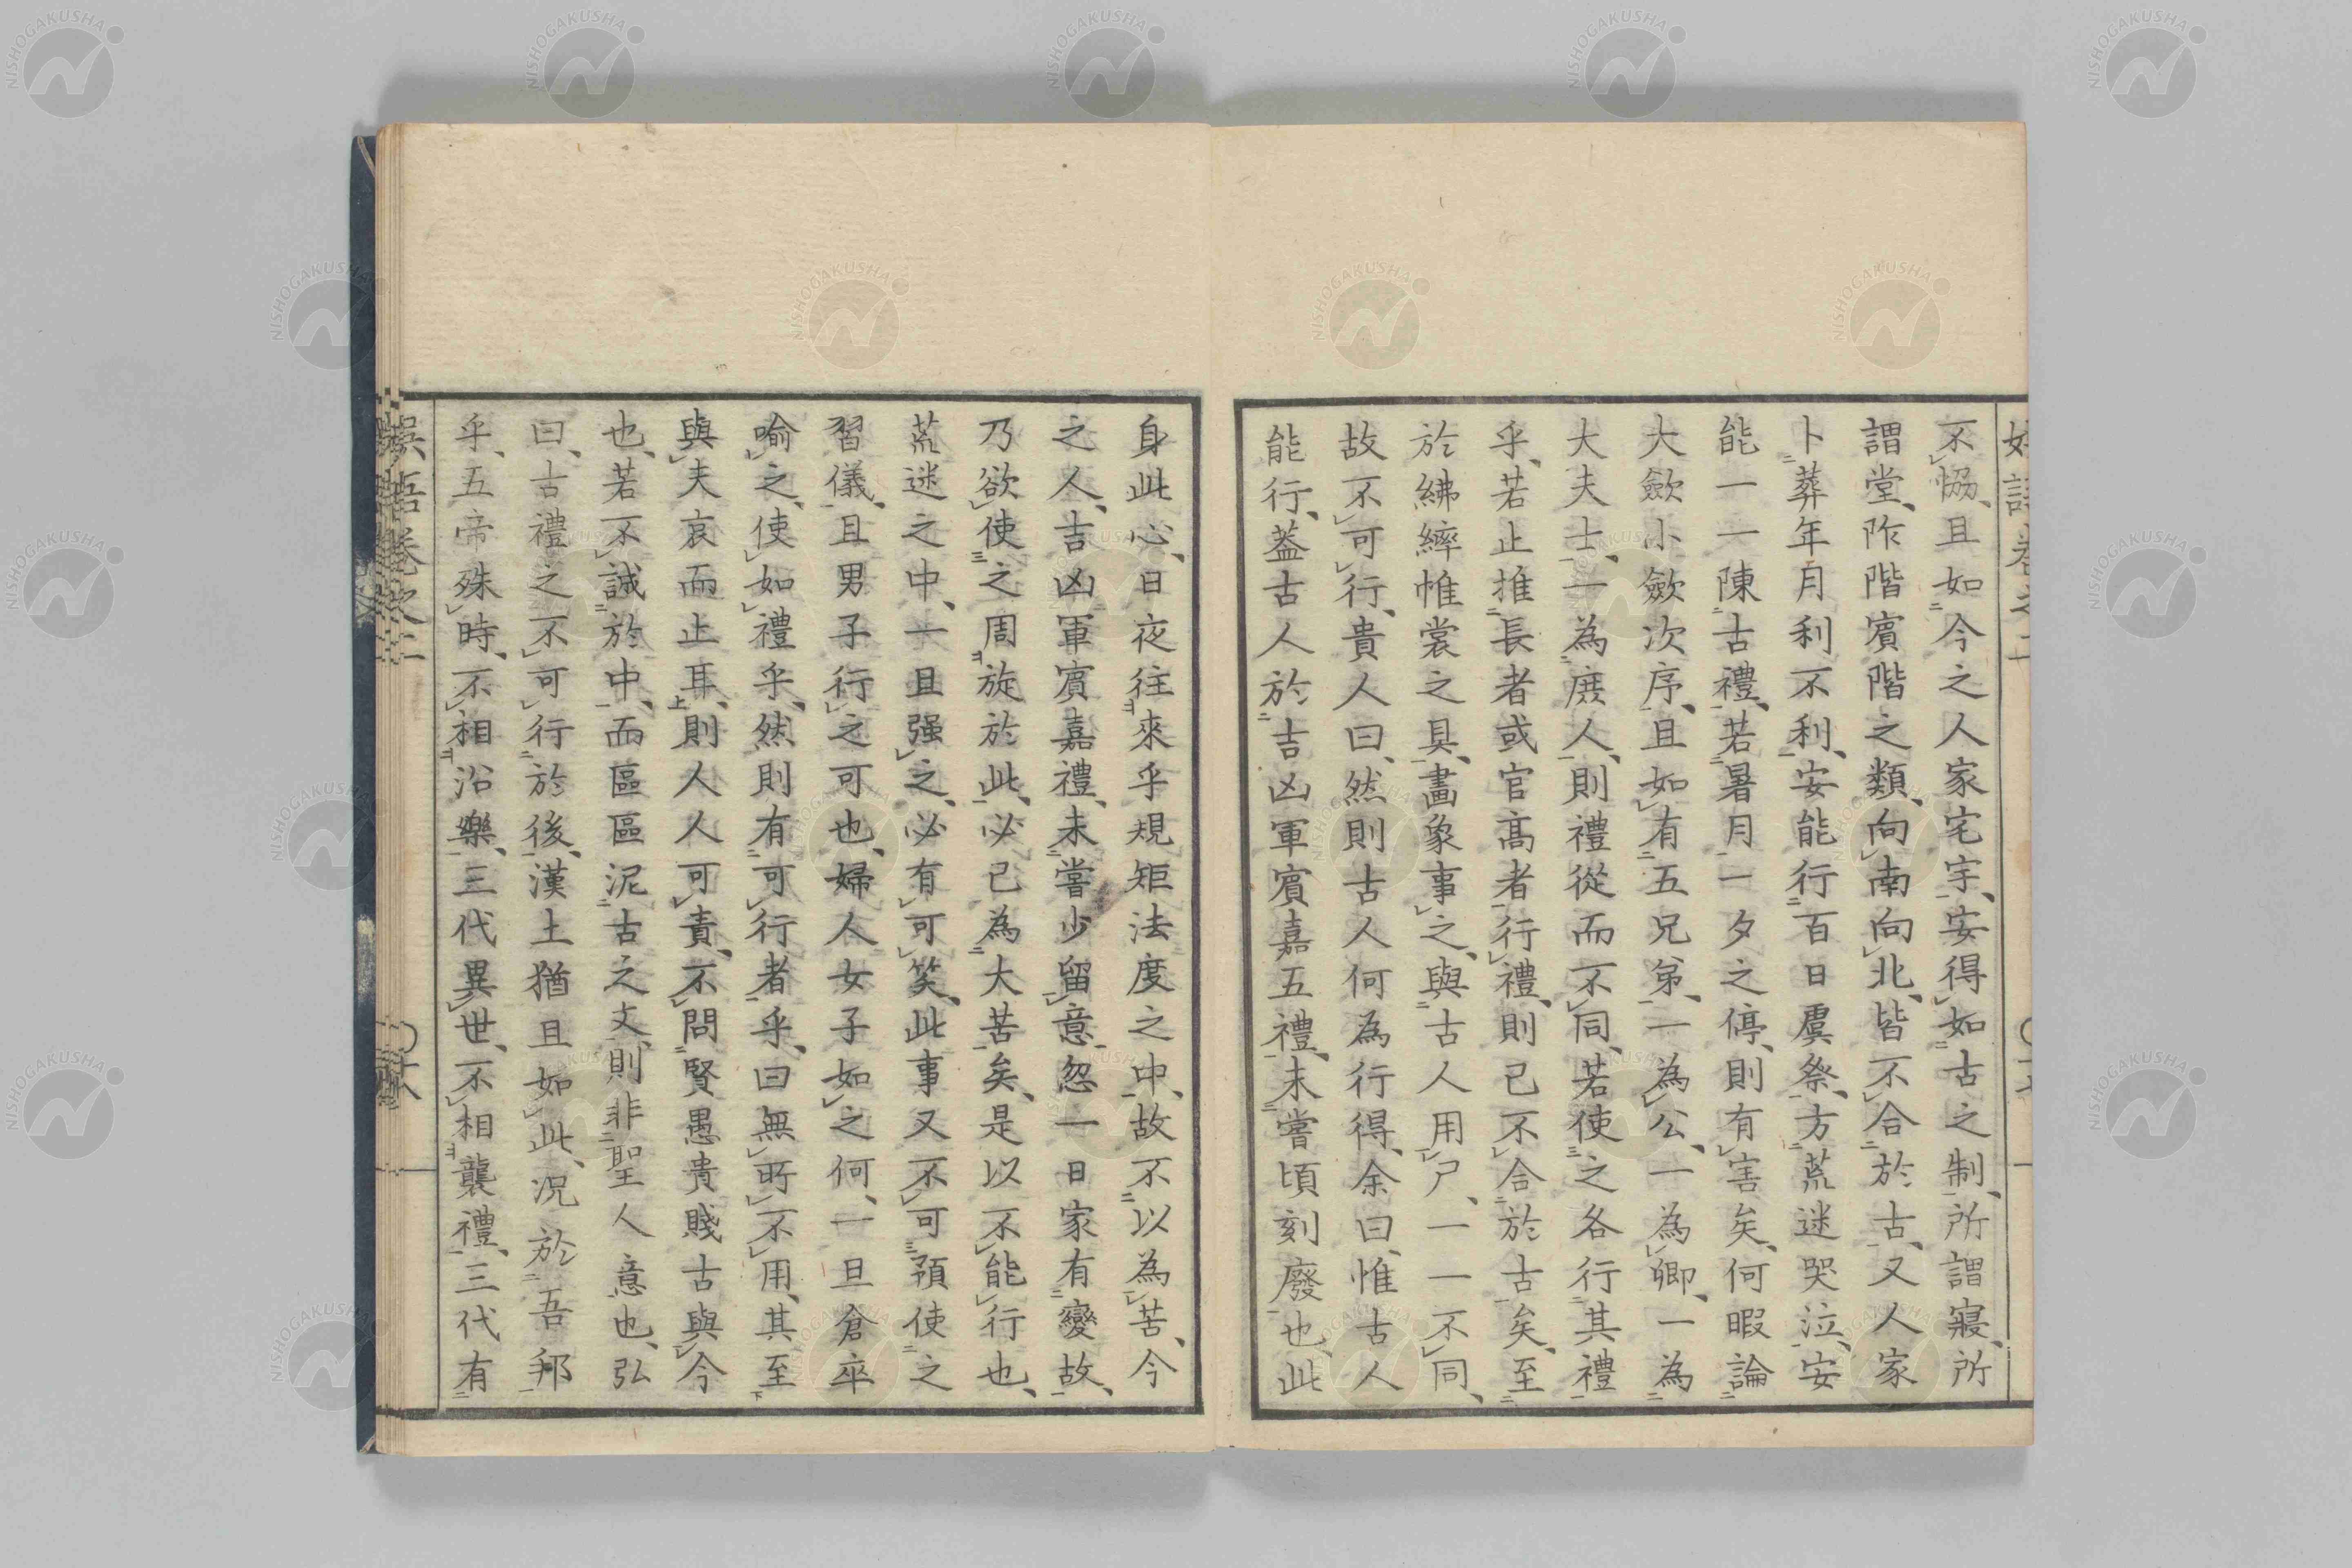 不協、且如今之人家宅宇、安得如古之制、所謂寢、所
謂堂、阼階賓階之類、向南向北、皆不合於古、又人家
卜葬年月利不利、安能行百日虞祭、方荒迷哭泣、安
能一一陳古禮、若暑月一夕之停、則有害矣、何暇論
大斂小斂次序、且如有五兄弟、一為公、一為卿、一為
大夫士、一為庶人、則禮從而不同、若使之各行其禮
乎、若止推長者或官高者行禮、則已不合於古矣、至
於紼繂帷裳之具、畫象事之、與古人用尸、一一不同、
故不可行、貴人曰、然則古人何為行得、余曰、惟古人
能行、蓋古人於吉凶軍賓嘉五禮、未嘗頃刻廢也、此
身此心、日夜往來乎規矩法度之中、故不以為苦、今
之人、吉凶軍賓嘉禮、未嘗少留意、忽一日家有變故、
乃欲使之周旋於此、必已為大苦矣、是以不能行也、
荒迷之中、一且强之、必有可笑、此事又不可預使之
習儀、且男子行之可也、婦人女子如之何、一旦倉卒
喻之、使如禮乎、然則有可行者乎、曰無所不用、其至
與夫哀而止耳、則人人可責、不問賢愚貴賤古與今
也、若不誠於中、而區區泥古之文、則非聖人意也、弘
曰、古禮之不可行於後、漢土猶且如此、況於吾邦
乎、五帝殊時、不相沿樂、三代異世、不相襲禮、三代有
NISHOGAKUSHA